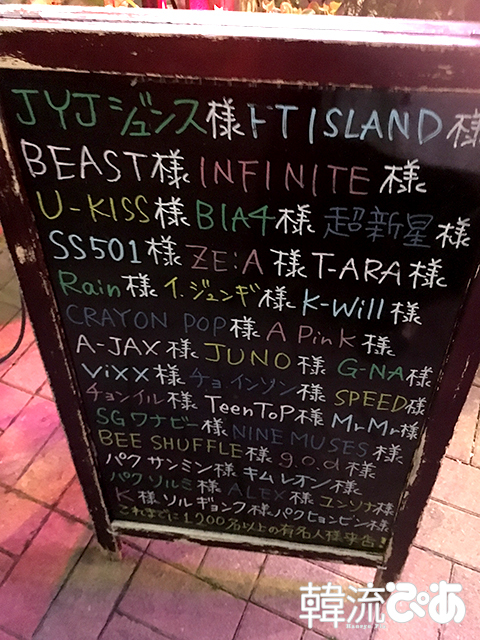 JYJ ジュンス様 FT ISLAND 様
BEAST様 INFINITE 様
U-KISS様 B1A4様 超新星 様
SS501様 ZE:A 様 T-ARA様
Rain 様 イ.ジュンギ様 K-Will 様
CRAYON POP様 A Pink 様
A-JAX 様 JUNO 様 G-NA様
ViXX 様 チョ インソン 様 SPEED様
チョンイル 様 TeenToP様 Mr.Mr様
SG ワナビー様 NINE MUSES 様
BEE SHUFFLE様 g.o.d 様
パク サンミン 様 キム レオン 様
パク ソルミ 様 ALEX 様 ユンソナ様
K 様 ソル ギョング 様 パク ヒョンビン 様
これまでに1,200名以上の有名人様来店!
韓流ぴあ